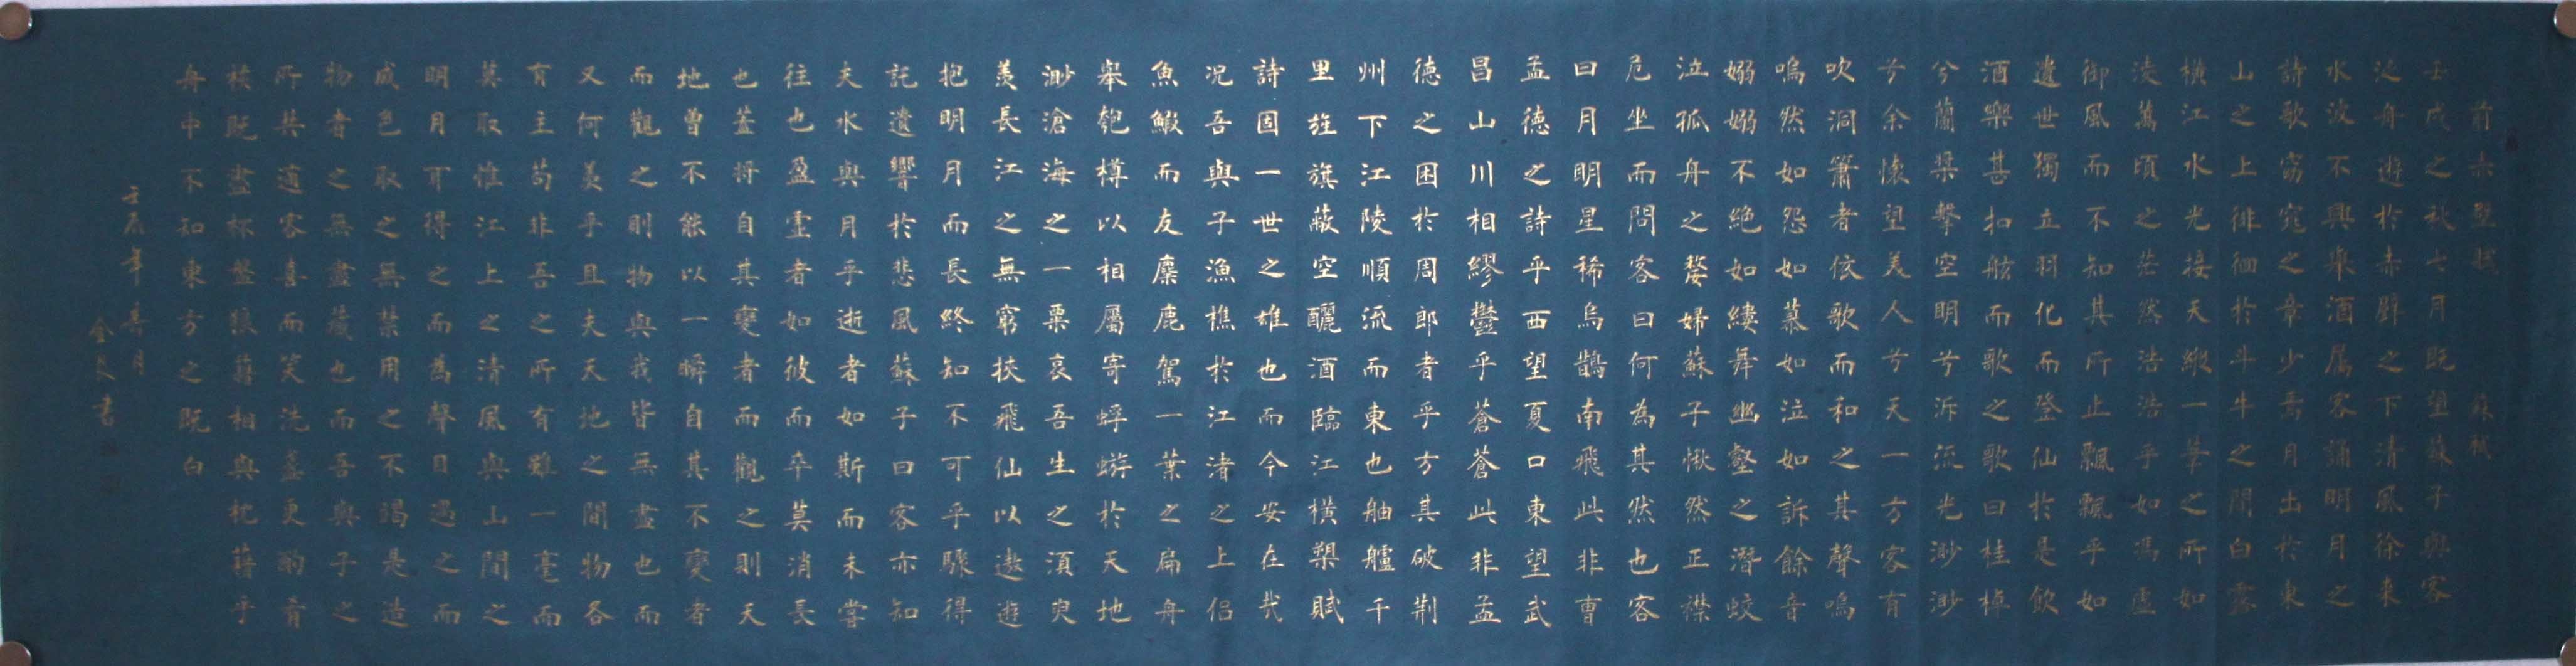 前赤壁賦 蘇軾
壬戌之秋七月既望蘇子與客
泛舟遊於赤壁之下清風徐來
水波不興舉酒屬客誦明月之
詩歌窈窕之章少焉月出於東
山之上徘徊於斗牛之間白露
橫江水光接天縱一葦之所如
淩萬頃之茫然浩浩乎如馮虛
御風而不知其所止飄飄乎如
遺世獨立羽化而登仙於是飲
酒樂甚扣舷而歌之歌曰桂棹
兮蘭槳擊空明兮泝流光渺渺
兮余懷望美人兮天一方客有
吹洞簫者依歌而和之其聲嗚
嗚然如怨如慕如泣如訴餘音
嫋嫋不絕如縷舞幽壑之潛蛟
泣孤舟之嫠婦蘇子愀然正襟
危坐而問客曰何為其然也客
曰月明星稀烏鵲南飛此非曹
孟德之詩乎西望夏口東望武
昌山川相繆鬱乎蒼蒼此非孟
德之困於周郎者乎方其破荆
州下江陵順流而東也舳艫千
里旌旗蔽空釃酒臨江橫槊賦
詩固一世之雄也而今安在哉
况吾與子漁樵於江渚之上侶
魚鰕而友麋鹿駕一葉之扁舟
舉匏樽以相屬寄蜉蝣於天地
渺滄海之一粟哀吾生之須臾
羨長江之無窮挾飛仙以遨遊
抱明月而長終知不可乎驟得
託遺響於悲風蘇子曰客亦知
夫水與月乎逝者如斯而未嘗
往也盈虛者如彼而卒莫消長
也蓋將自其變者而觀之則天
地曾不能以一瞬自其不變者
而觀之則物與我皆無盡也而
又何羨乎且夫天地之間物各
有主苟非吾之所有雖一毫而
莫取惟江上之清風與山間之
明月耳得之而為聲目遇之而
成色取之無禁用之不竭是造
物者之無盡藏也而吾與子之
所共適客喜而笑洗盞更酌肴
核既盡杯盤狼藉相與枕藉乎
舟中不知東方之既白
壬辰年春月
金良書